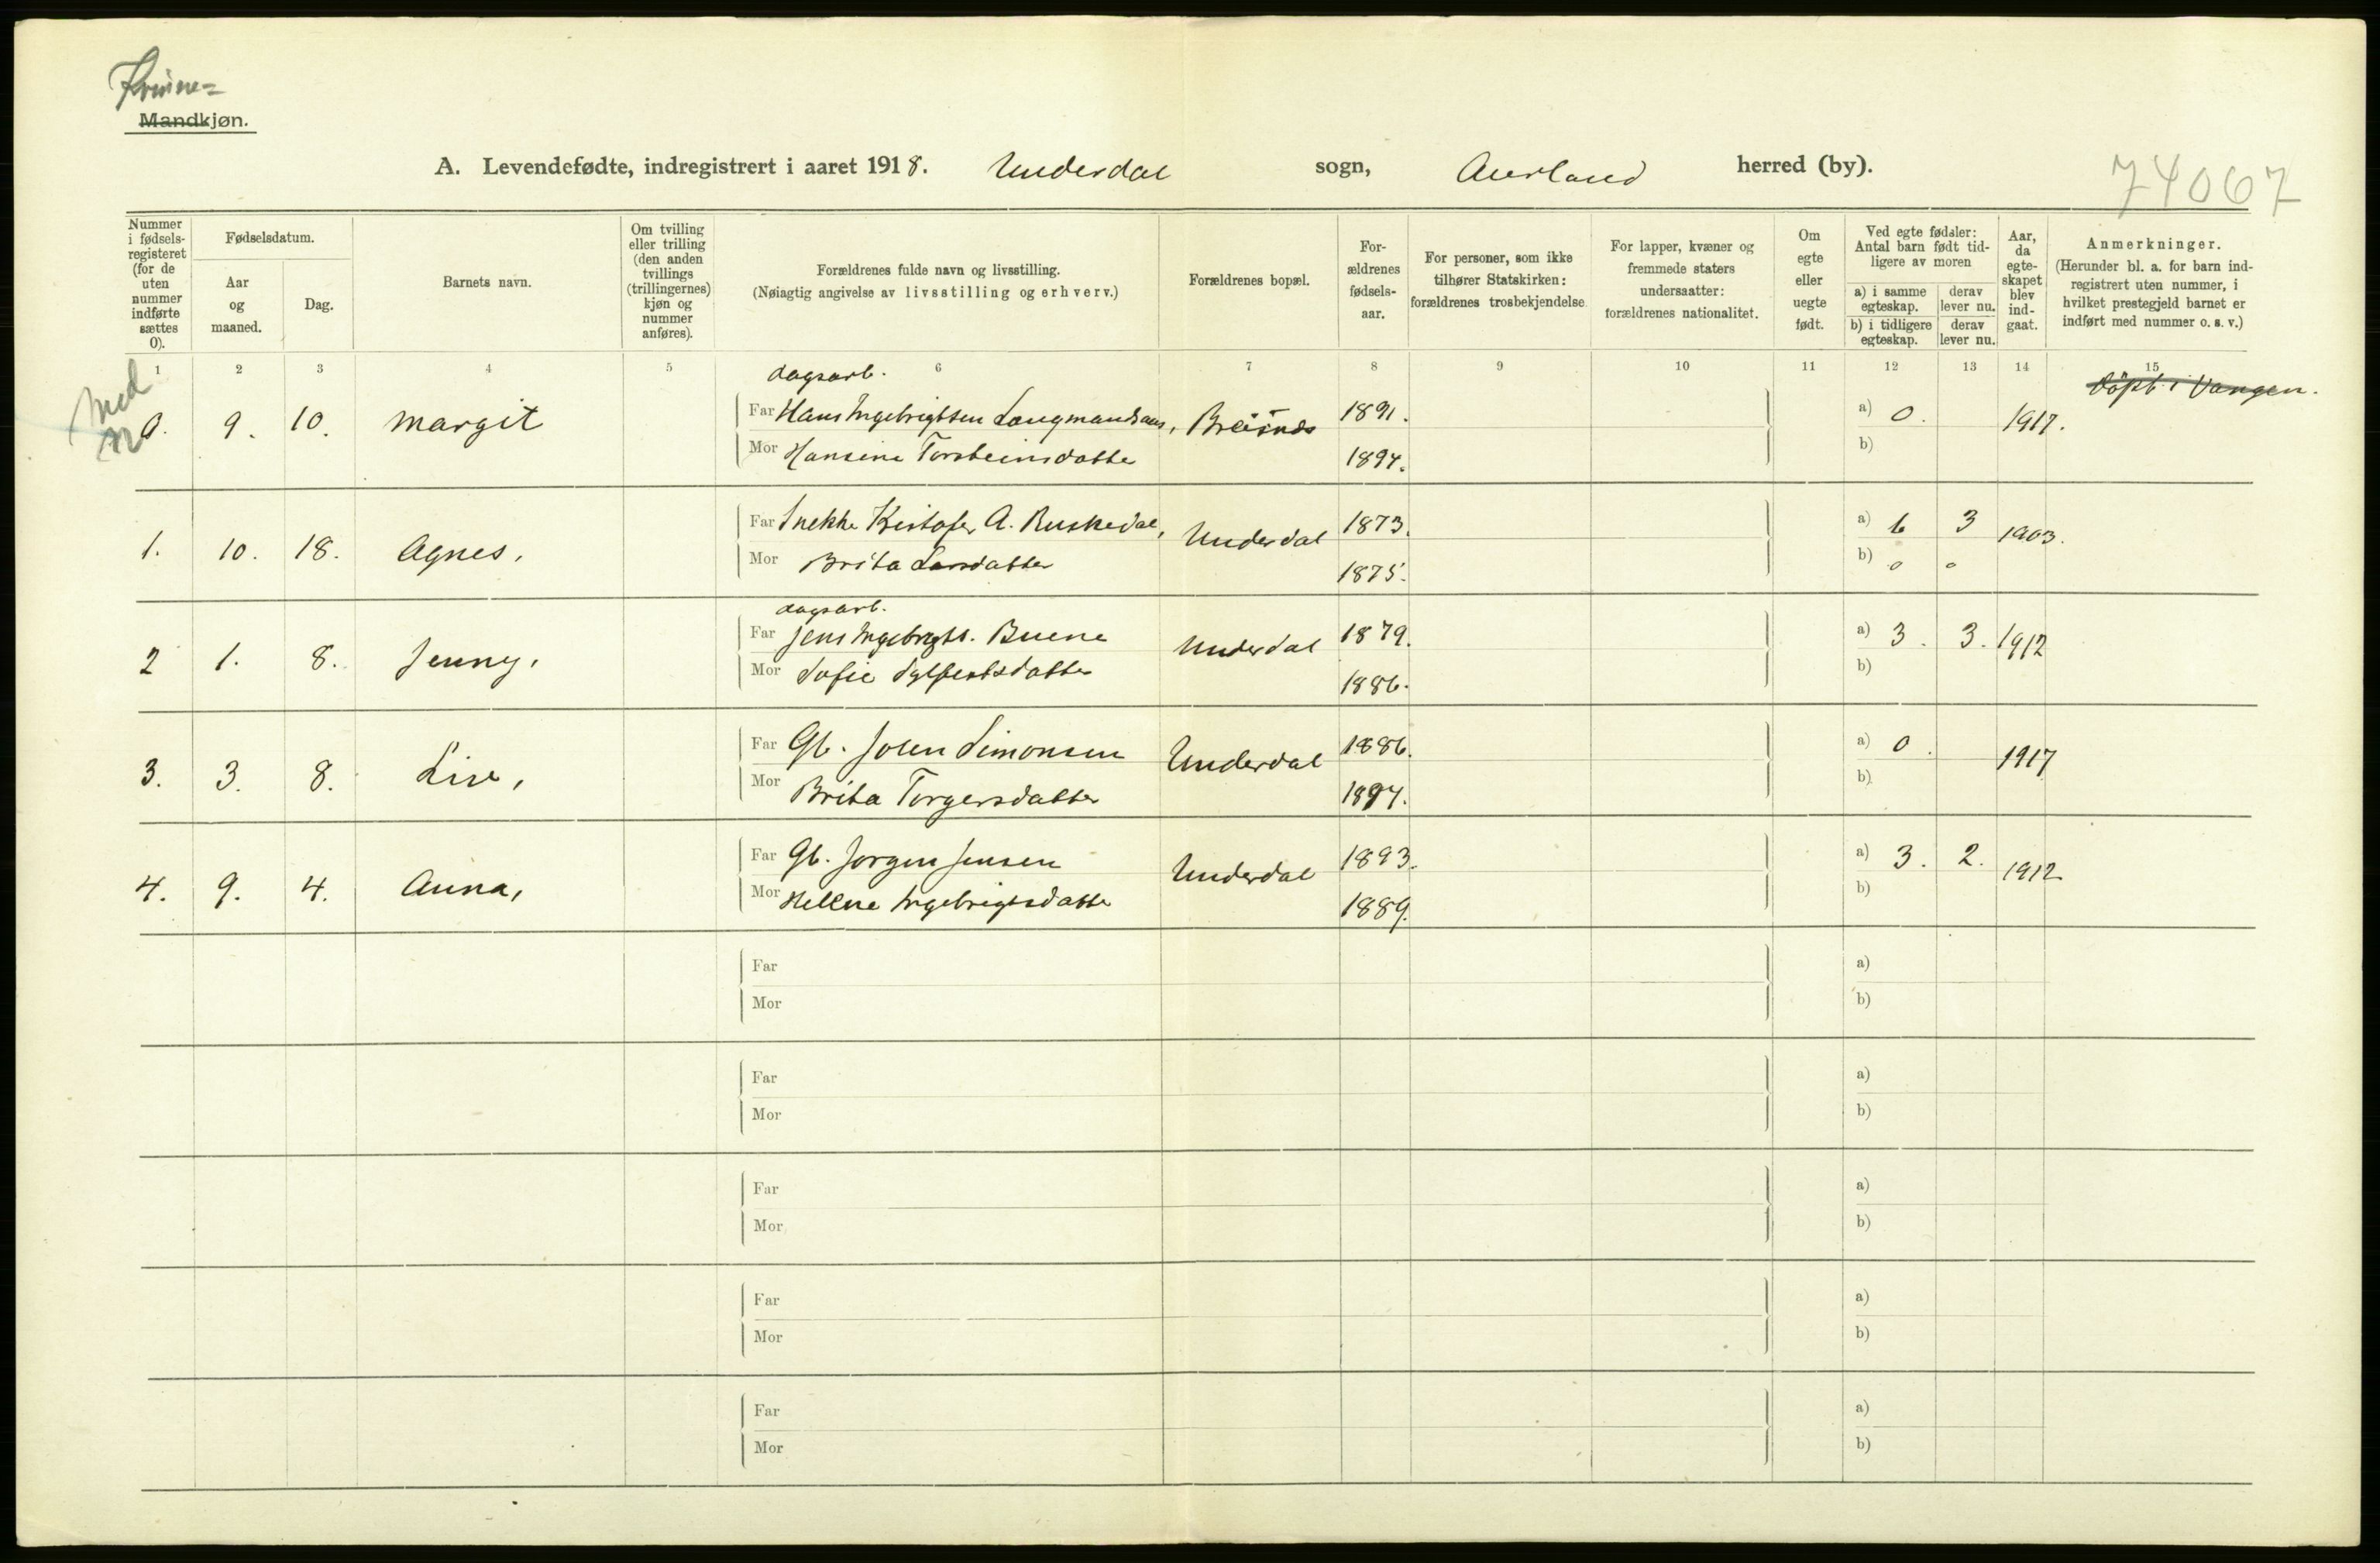 Kvinne=
Mandkjøn.
A. Levendefødte, indregistrert i aaret 1918. Underdal sogn, Aurland herred (by).
74067
Nummer i fødsels-registeret (for de uten nummer indførte sættes 0).
Fødselsdatum.
Aar og maaned.
Dag.
Barnets navn.
Om tvilling eller trilling (den anden tvillings (trillingernes) kjøn og nummer anføres).
Forældrenes fulde navn og livsstilling.
(Nøiagtig angivelse av livsstilling og erhverv.)
Forældrenes bopæl.
For-ældrenes fødsels-aar.
For personer, som ikke tilhører Statskirken: forældrenes trosbekjendelse
For lapper, kvæner og fremmede staters undersaatter: forældrenes nationalitet.
Om egte eller uegte født.
Ved egte fødsler: Antal barn født tid-ligere av moren
a) i samme egteskap.
derav lever nu.
b) i tidligere egteskap.
derav lever nu.
Aar, da egte-skapet blev ind-gaat.
Anmerkninger.
(Herunder bl. a. for barn ind-registrert uten nummer, i hvilket prestegjeld barnet er indført med nummer o. s. v.)
1 2 3 4 5 6 7 8 9 10 11 12 13 14 15
Med
dagsarb.
døpt i Vangen.
0. 9. 10. Margit
Far Hans Ingebrigtsen 1891. a) 0. 1917.
Mor Hansine Torsteinsdatter 1894. b)
1. 10. 18. Agnes,
Far Snekke Kristofer A. Ruskedal, Underdal 1873. a) 6 3 1903.
Mor Brita Larsdatter 1875. b) 0 0
dagsarb.
2 1. 8. Jenny,
Far Jens Ingebrigts. Buene Underdal 1879. a) 3. 3. 1912
Mor Sofie 1886. b)
3. 3. 8. Lise,
Far Gb. Simonsen Underdal 1886. a) 0. 1917
Mor Brita Torgersdatter 1894. b)
4. 9. 4. Anna,
Far Gb. Jørgen Jensen Underdal 1893. a) 3. 2. 1912
Mor Hellene Ingebrigtsdatter 1889. b)
Far a)
Mor b)
Far a)
Mor b)
Far a)
Mor b)
Far a)
Mor b)
Far a)
Mor b)